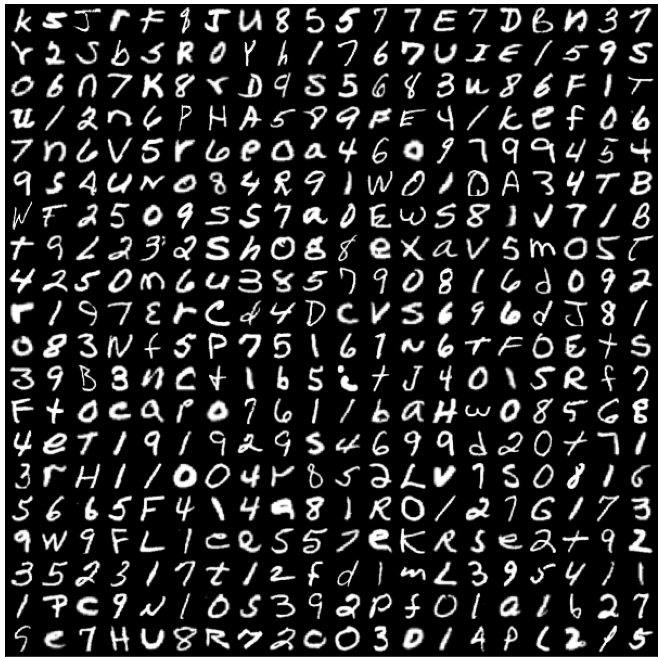 K 5 J r F 8 J U 8 5 5 7 7 E 7 D B n 3 7
Y 2 S b S R 0 Y h 1 7 6 7 U I E 1 5 9 5
0 6 n 7 K 8 r D 9 S 5 6 8 3 u 8 6 F 1 T
u 1 2 n 6 P H A 5 8 9 F E 4 1 K e f 0 6
7 n 6 V 5 r 6 e 0 a 4 6 0 9 7 9 9 4 5 4
9 S A U N 0 8 4 R 9 1 W 0 1 D A 3 4 T B
W F 2 5 0 9 S S 7 a 0 E W S 8 1 V 7 1 B
t 9 L 2 3 2 S h 0 8 8 e X a V 5 m 0 5 T
4 2 5 0 m 6 u 3 8 5 7 9 0 8 1 6 d 0 9 2
r 1 9 7 E r C d 4 D C V S 6 9 6 d J 8 1
0 8 3 N f 5 P 7 5 1 6 7 N 6 T F 0 E t S
3 9 B 3 n C t 1 b 5 i t J 4 0 1 5 R f 7
F t 0 C a P 0 7 6 1 1 b a H W 0 8 5 6 8
4 e T 1 9 1 9 2 9 S 4 6 9 9 d 2 0 t 7 1
3 r H 1 1 0 0 4 r 8 5 2 L V 7 S 0 8 1 6
5 6 6 5 F 4 1 4 a 8 1 R 0 1 2 7 G 1 7 3
9 W 9 F L 1 C e 5 5 7 e K R S e 2 t 9 2
3 5 2 3 1 7 t 1 2 f d 1 m L 3 9 5 4 1 1
1 P C 9 N 1 0 5 3 9 2 P f 0 1 a 1 b 2 7
9 e 7 H U 8 R 7 2 0 0 3 D 1 A P L 2 P 5